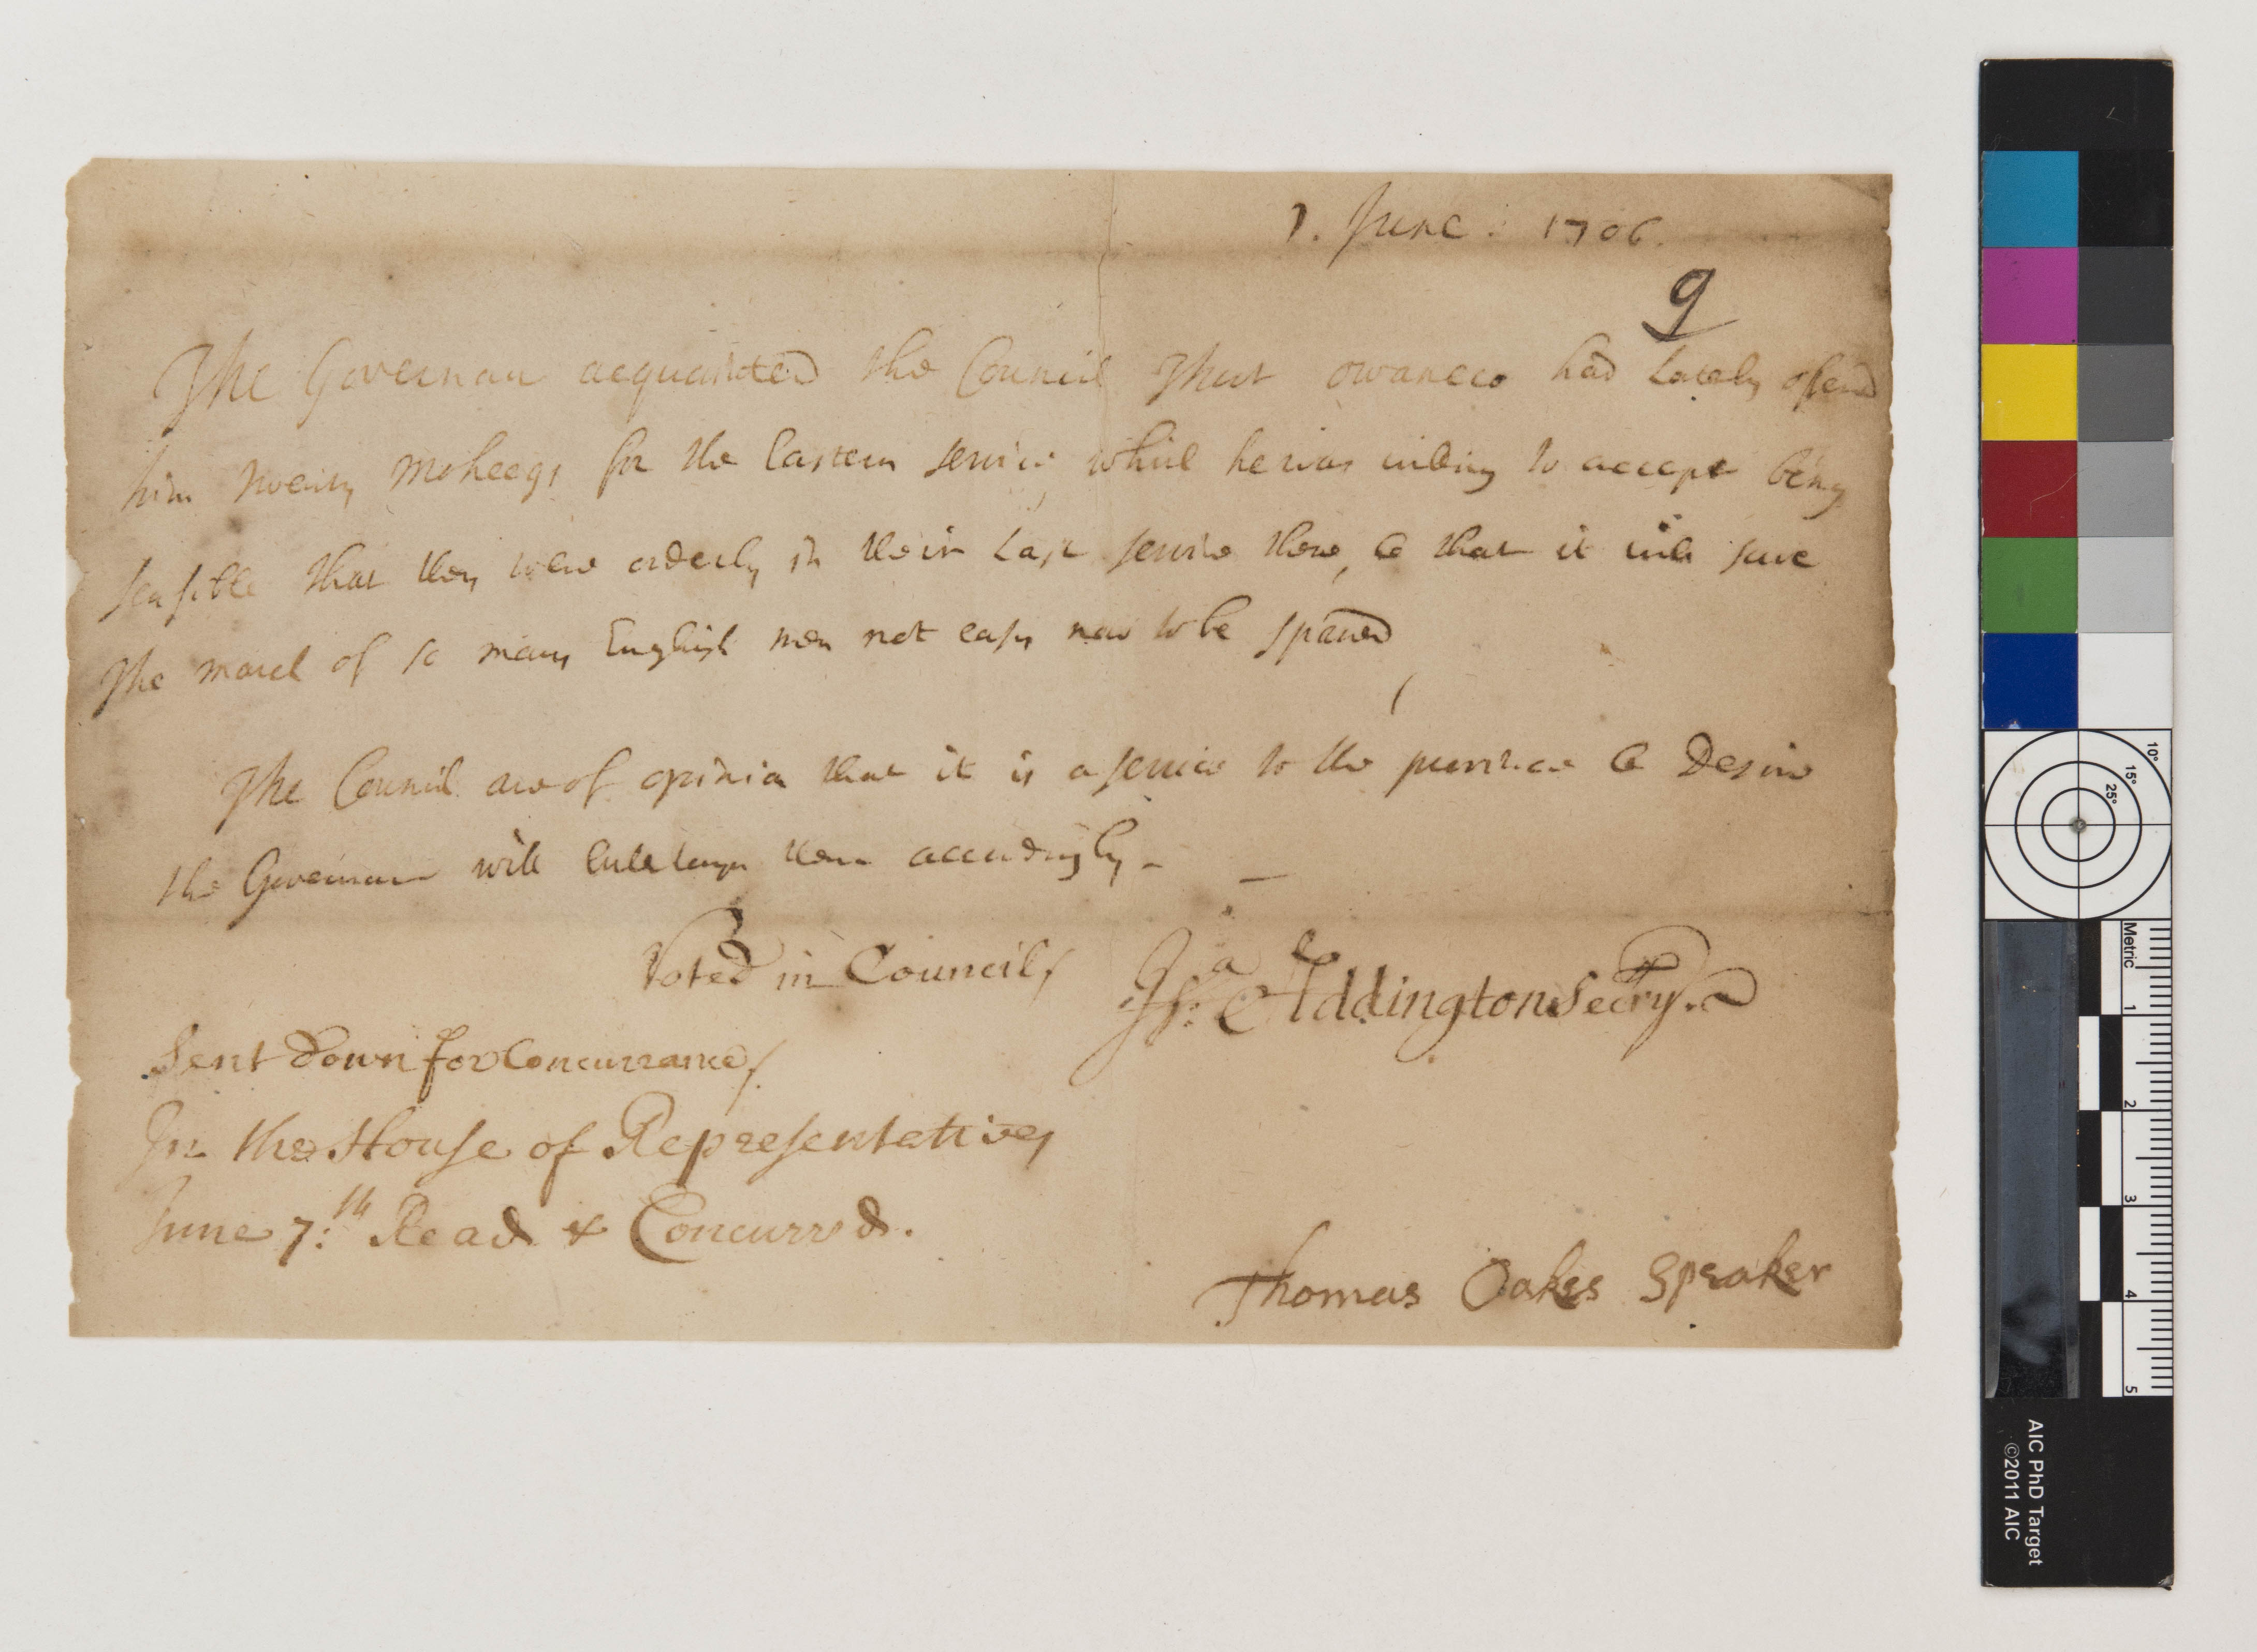 7. June: 1706.
9
The Governour acquainted the Council That owaneco had Lately offerd
him twenty moheegs for the Eastern service, which he was willing to accept being
sensible that they were orderly in their Last service there, & that it will save
The march of so many English men not easy now to be spared
The Council are of opinion that it is a service to the province & Desire
the Governour will accordingly -
Voted in Council,
Jsa Addington Secry.
Sent down for Concurrance,
In the House of Representatives
June 7:th Read & Concurrd.
Thomas Oakes Speaker
10° 15° 25°
Metric 1 2 3 4 5
AIC PhD Target
©2011 AIC